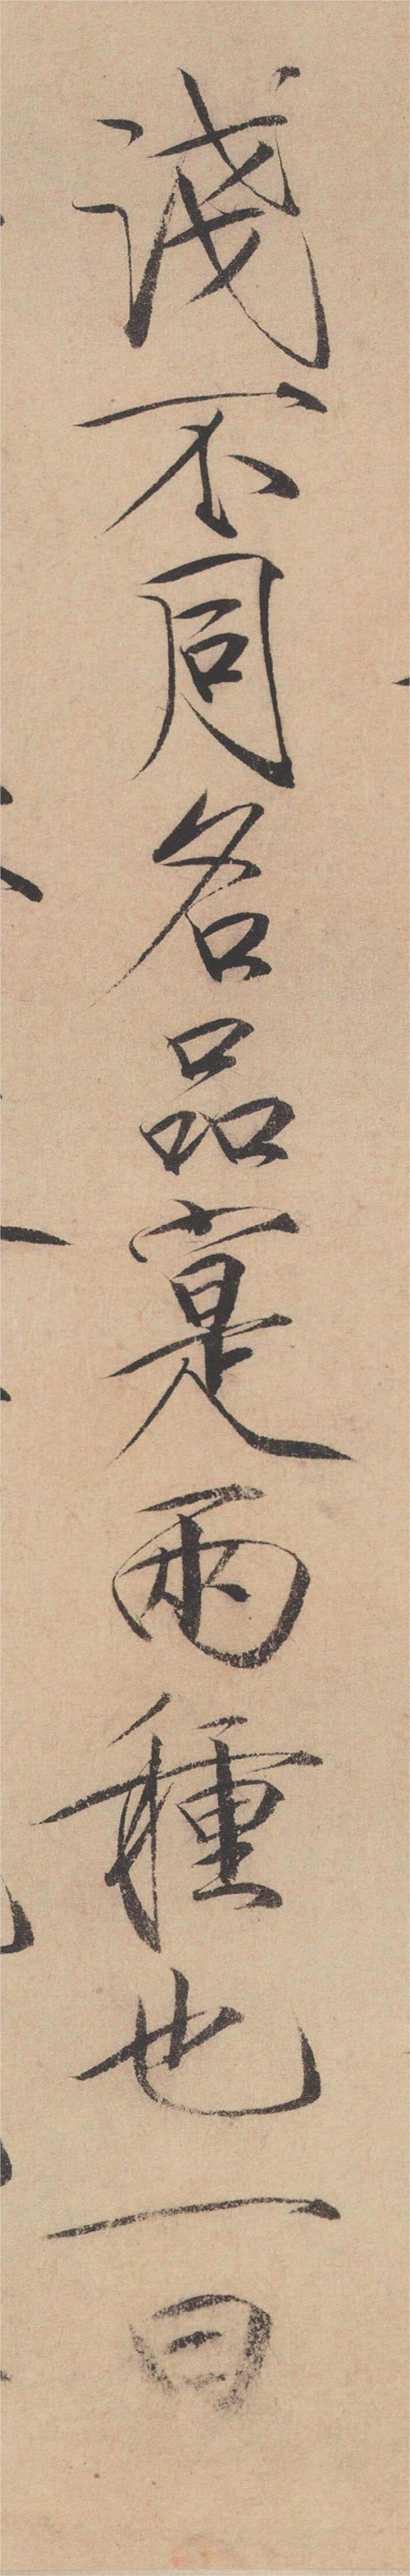 淺不同名品寔兩種也一曰